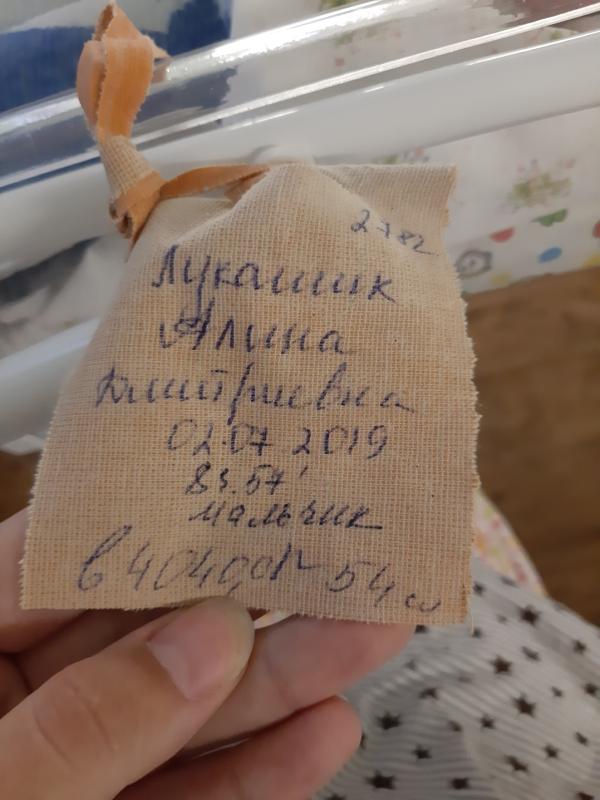 2782
Лукашик
Алина
Дмитриевна
02.07.2019
8ч.57'
мальчик
в 4040,0г 54 см